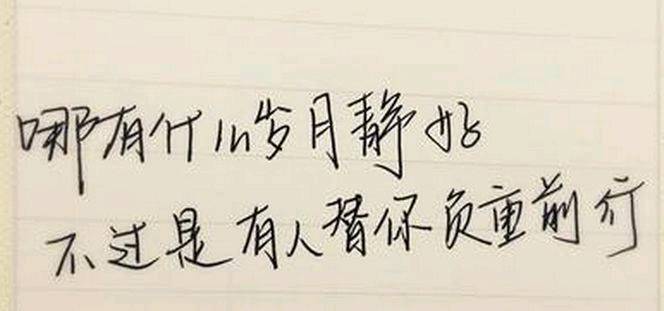 哪有什么岁月静好
不过是有人替你负重前行